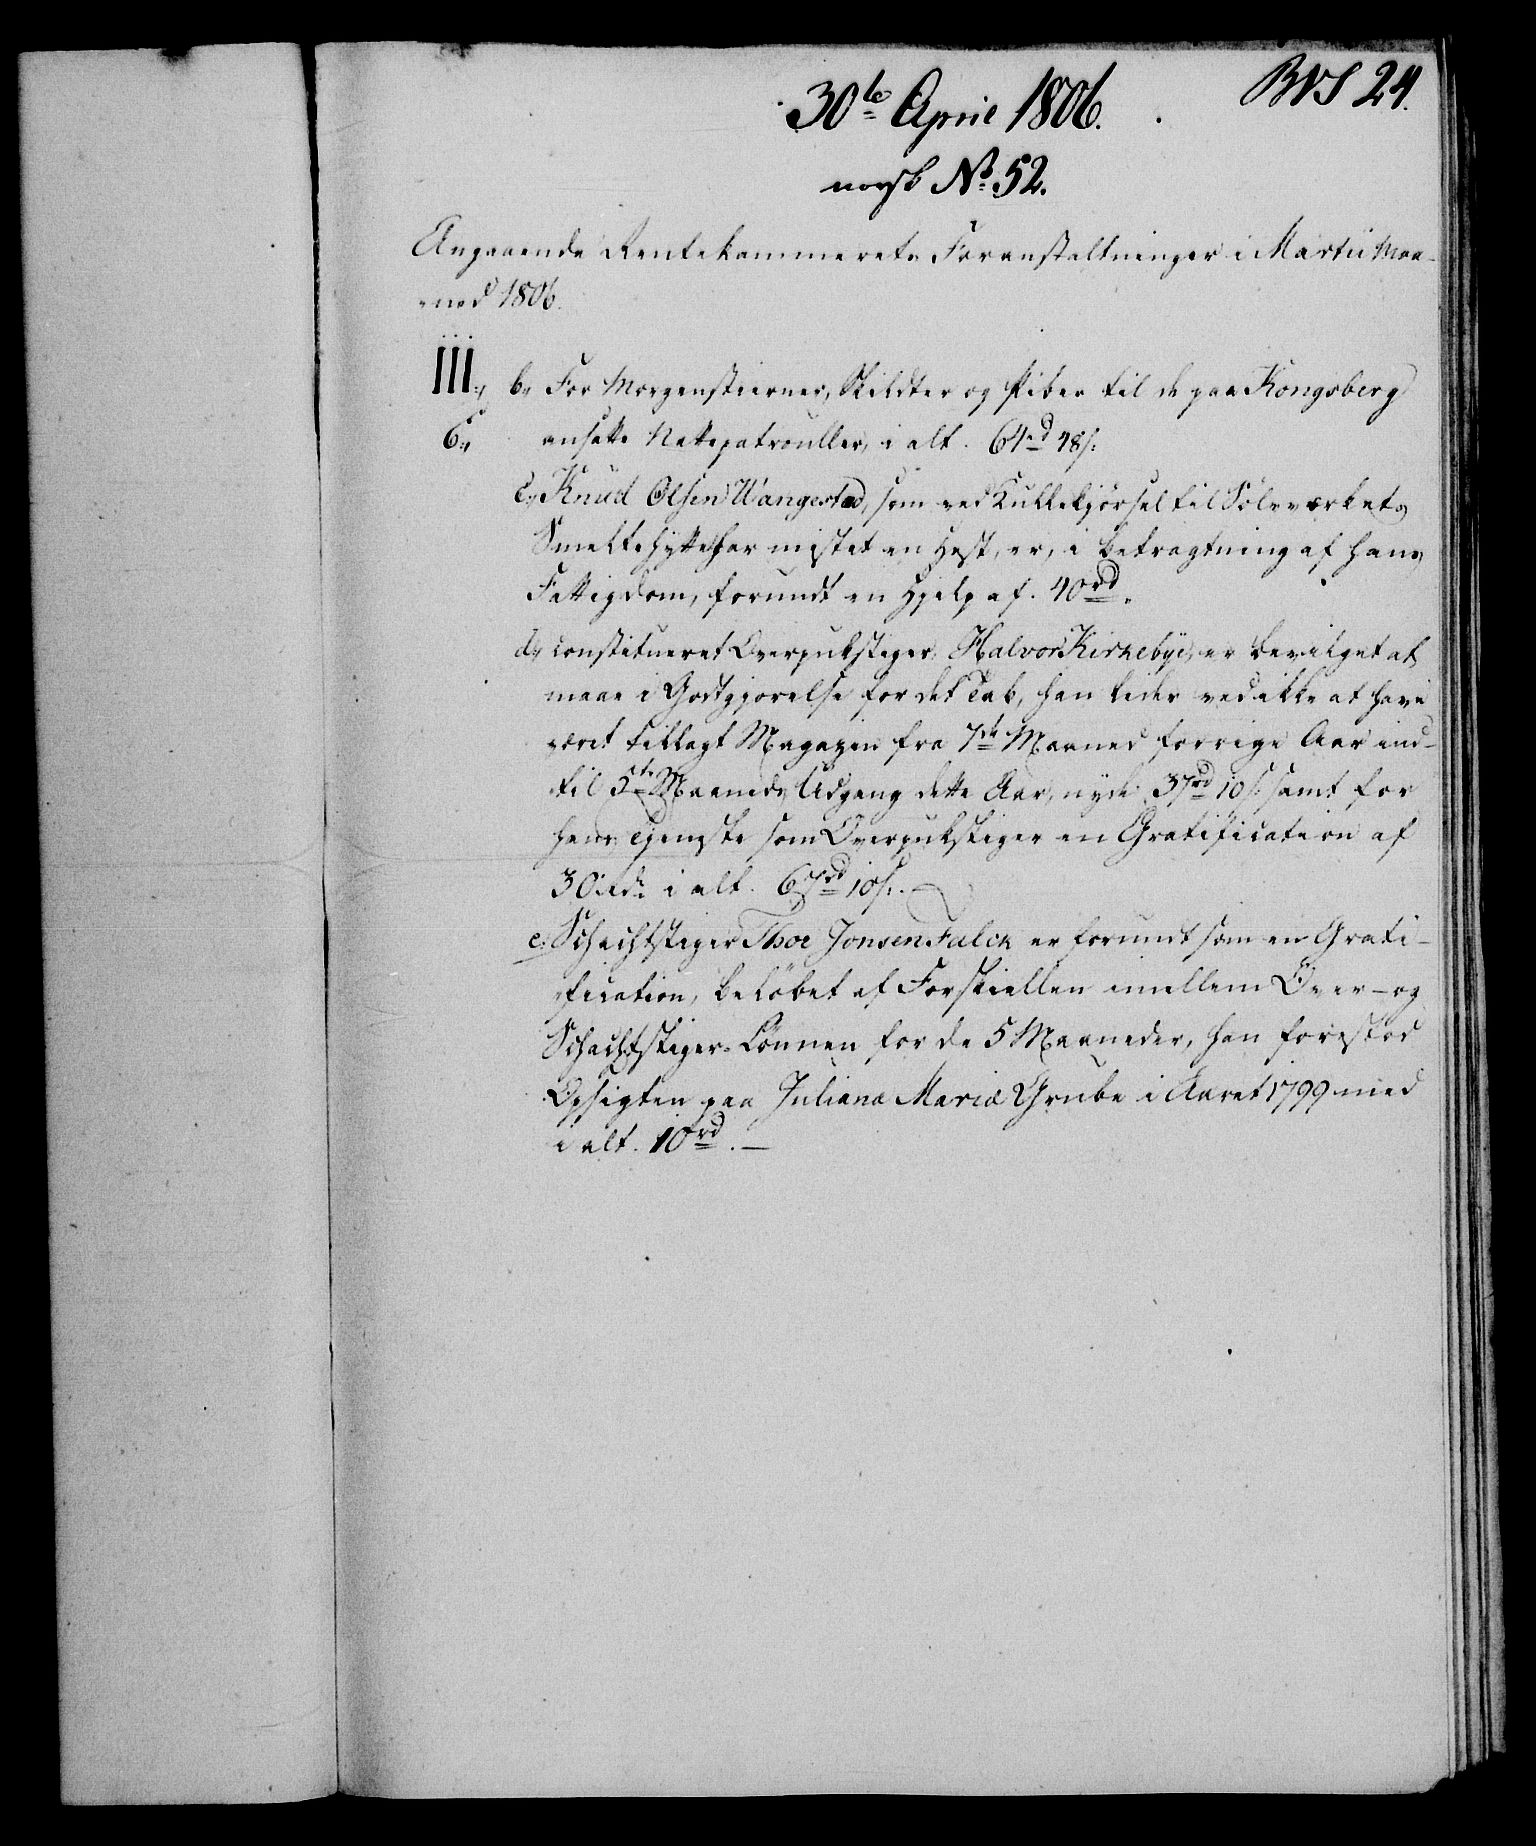 BVS 24.
30te April 1806.
norsk No 52.
Angaaende Rentekammerets Foranstaltninger i Martii Maa-
ned 1806.
III. b, For Morgenstierner, Skildter og Piber til de paa Kongsberg
6. ansatte Nattepatrouller, i alt. 64 rd 48 s:
c, Knud Olsen Wangestad, som ved Kullekjörsel til Sölvværkets
Smeltehytte har mistet en Hest, er, i betragtning af hans
Fattigdom, forundt en Hjelp af. 40 rd.
d, constitueret Overpukstiger, Halvor Kirkebye, er bevilget at
maae i Godtgjörelse for det Tab, han lider ved ikke at have
været tillagt Magazin fra 7de Maaned forrige Aar ind-
til Maaneds Udgang dette Aar, nyde 37 rd 10 s. samt for
hans Tjeneste som Overpukstiger en Gratification af
30 rd. i alt. 67 rd 10 s.
e, Schachtstiger Thor Jonsen Falck er forundt som en Grati-
fication, belöbet af Forskiellen imellem Over- og
Schachtstiger-Lönnen for de 5 Maaneder, han forestod
Opsigten paa Juliana Maria Grube i Aaret 1799 med
i alt. 10 rd. —